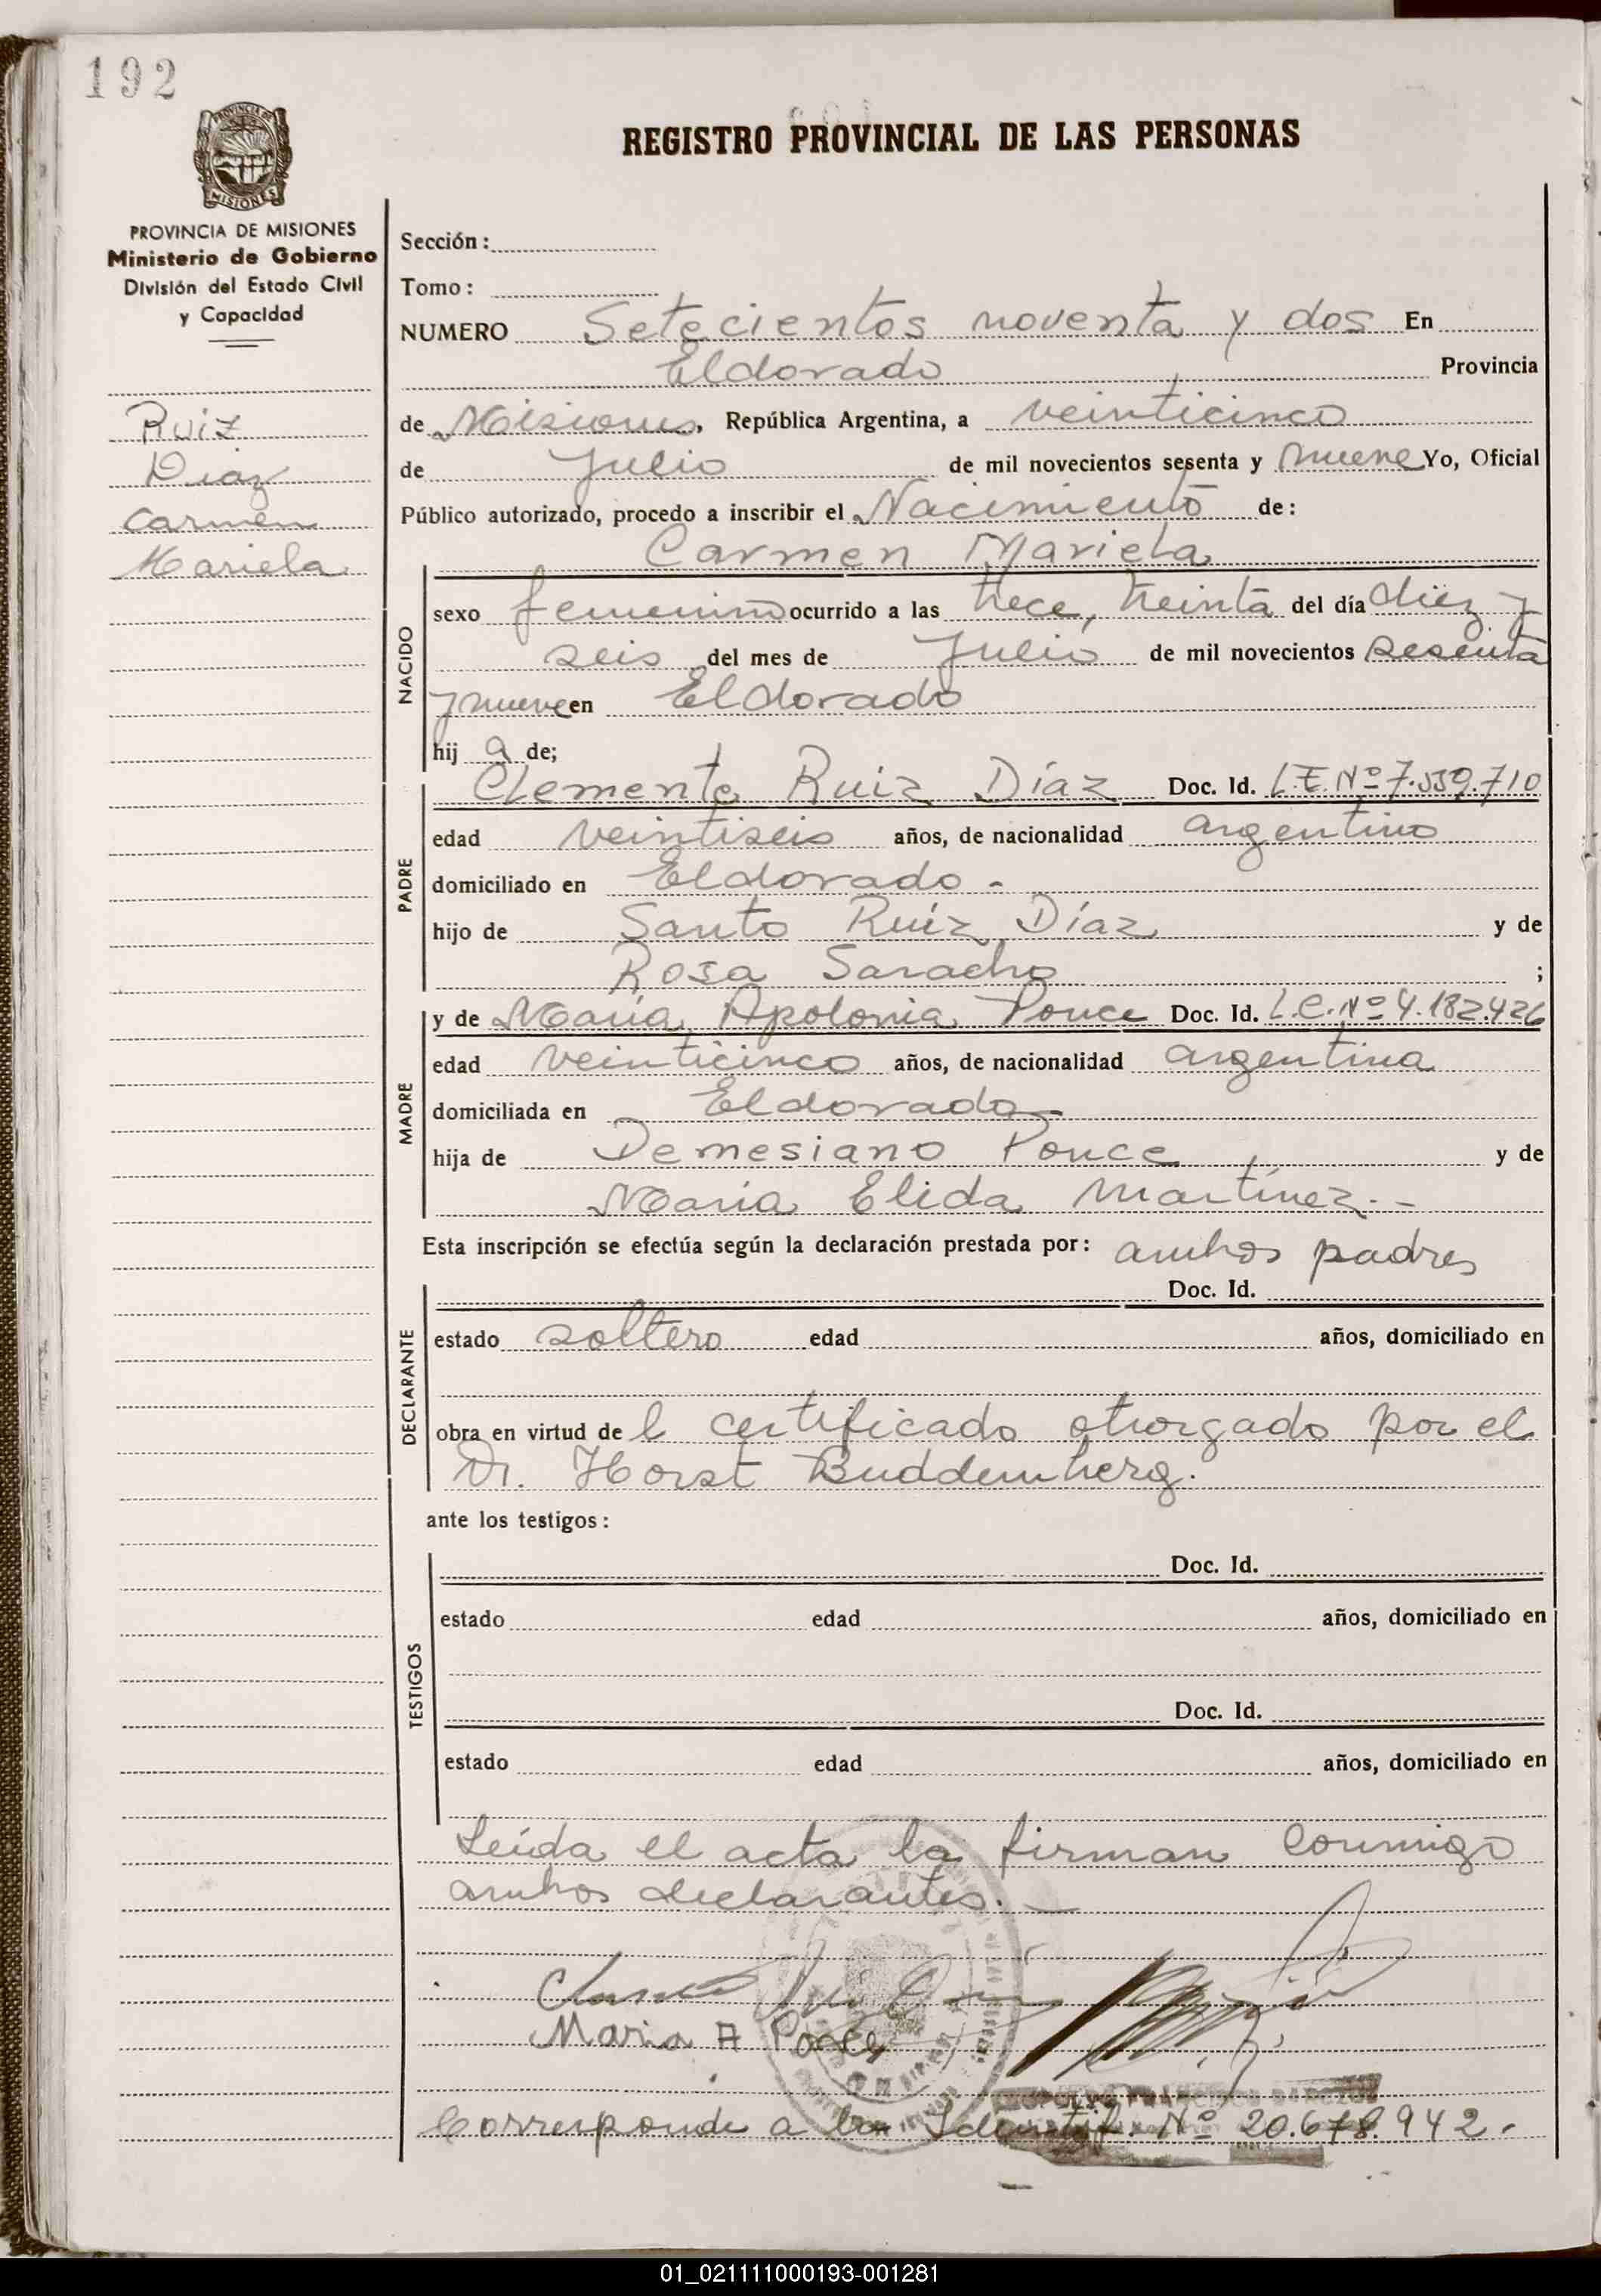 192
REGISTRO PROVINCIAL DE LAS PERSONAS
PROVINCIA DE MISIONES
Ministerio de Gobierno
División del Estado Civil
y Capacidad
Ruiz
Diaz
Carmen
Mariela
Sección:
Tomo:
NUMERO Setecientos noventa y dos En
Eldorado Provincia
de Misiones, República Argentina, a veinticinco
de Julio de mil novecientos sesenta y nueve Yo, Oficial
Público autorizado, procedo a inscribir el Nacimiento de:
Carmen Mariela
NACIDO
sexo femenino ocurrido a las trece, treinta del día diez y
seis del mes de Julio de mil novecientos sesenta
y nueve en Eldorado
hij a de;
PADRE
Clemente Ruiz Díaz Doc. Id. L.E. Nº 7.539.710
edad veintiseis años, de nacionalidad argentino
domiciliado en Eldorado -
hijo de Santo Ruiz Díaz y de
Rosa Saracho ;
MADRE
y de María Apolonia Ponce Doc. Id. L.C. Nº 4.182.426
edad veinticinco años, de nacionalidad argentina
domiciliada en Eldorado -
hija de Demesiano Ponce y de
María Elida Martínez. -
Esta inscripción se efectúa según la declaración prestada por: ambos padres
Doc. Id.
DECLARANTE
estado soltero edad años, domiciliado en
obra en virtud de l certificado otorgado por el
Dr. Horst Buddemberg.
ante los testigos:
TESTIGOS
Doc. Id.
estado edad años, domiciliado en
Doc. Id.
estado edad años, domiciliado en
Leída el acta la firman conmigo
ambos declarantes. -
Maria A Ponce
Corresponde a la Identif. Nº 20.678.942.-
01_021111000193-001281